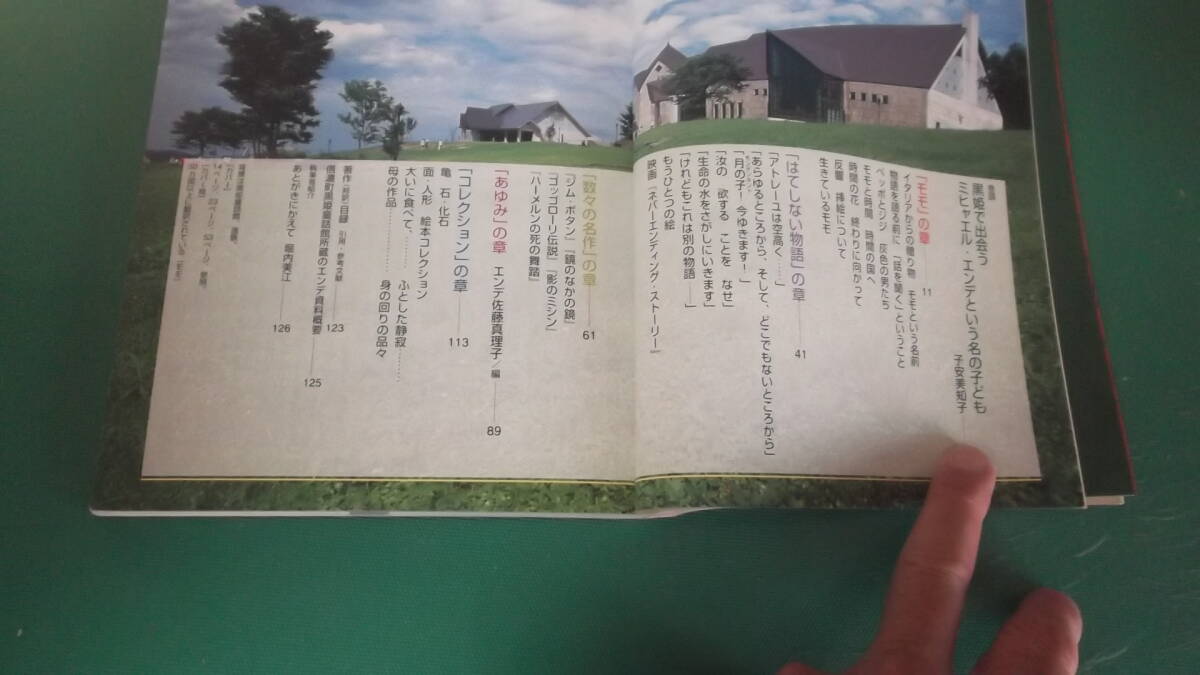 黒姫で出会う
ミヒャエル・エンデという名の子ども
子安美知子
「モモ」の章 11
イタリアからの贈り物 モモという名前
物語を語る前に 「話を聞く」ということ
ベッポとジジ 灰色の男たち
モモと時間 時間の国へ
時間の花 終わりに向かって
反響 挿絵について
生きているモモ
「はてしない物語」の章 41
「アトレーユは空高く……」
「あらゆるところから、そして、どこでもないところから」
「月の子! 今ゆきます!」
「汝の 欲する ことを なせ」
「生命の水をさがしにいきます」
「けれどもこれは別の物語――」
もうひとつの絵
映画『ネバーエンディング・ストーリー』
「数々の名作」の章 61
「ジム・ボタン」「鏡のなかの鏡」
「ゴッゴローリ伝説」「影のミシン」
「ハーメルンの死の舞踏」
「あゆみ」の章 エンデ佐藤真理子/編 89
「コレクション」の章 113
亀 石・化石
面・人形 絵本コレクション
大いに食べて、…… ふとした静寂……
母の作品…… 身の回りの品々
著作(邦訳)目録 引用・参考文献 123
信濃町黒姫童話館所蔵のエンデ資料概要 125
執筆者紹介
あとがきにかえて 堀内美江 126